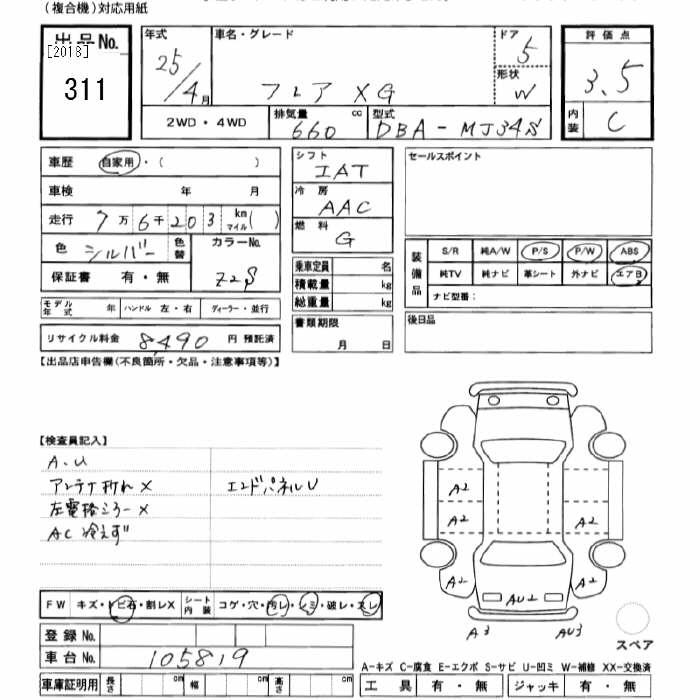 (複合機)対応用紙
出品No.
[2018]
311
年式
25/4月
車名・グレード
フレア XG
ドア
5
形状
W
評価点
3.5
内装
C
2WD・4WD
排気量
660 cc
型式
DBA-MJ34S
車歴 自家用・( )
車検 年 月
走行 7万6千203 km マイル( )
色 シルバー 色替
カラーNo.
Z2S
保証書 有・無
シフト
IAT
冷房
AAC
燃料
G
乗車定員 名
積載量 kg
総重量 kg
書類期限
月 日
セールスポイント
装備品
S/R 純A/W P/S P/W ABS
純TV 純ナビ 革シート 外ナビ エアB
ナビ型番:
後日品
モデル年式 年 ハンドル 左・右 ディーラー・並行
リサイクル料金 8,490 円 預託済
【出品店申告欄(不良箇所・欠品・注意事項等)】
【検査員記入】
A.U
アンテナ折れ X
エンドパネルU
左電格ミラー X
AC 冷えず
FW キズ・トビ石・割レX
シート内装 コゲ・穴・汚レ・シミ・破レ・スレ
登録No.
車台No. 105819
車庫証明用 長さ cm 幅 cm 高さ cm
A2
A2
A2
A2
A2
A2
AU2
A3
AU3
スペア
A-キズ C-腐食 E-エクボ S-サビ U-凹ミ W-補修 XX-交換済
工具 有・無 ジャッキ 有・無